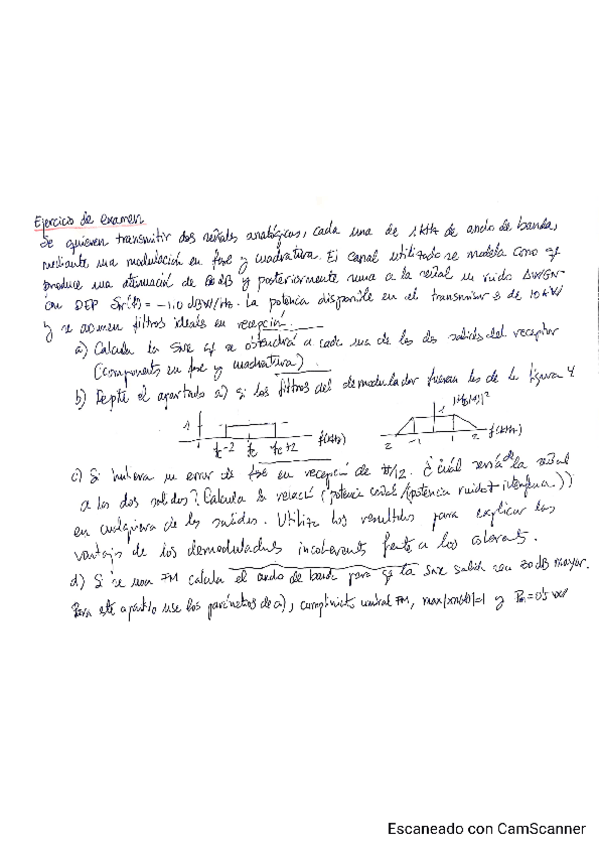 Ejercicio de examen
Se quieren transmitir dos señales analógicas, cada una de 1 kHz de ancho de banda,
mediante una modulación en fase y cuadratura. El canal utilizado se modela como q
produce una atenuación de dB y posteriormente suma a la señal un ruido AWGN
con DEP = -110 dBW/Hz. La potencia disponible en el transmisor es de 10 kW
y se asumen filtros ideales en recepción.
a) Calcula la SNR q se obtendrá a cada una de las dos salidas del receptor
(componentes en fase y cuadratura).
b) Repite el apartado a) si los filtros del demodulador fueran los de la figura
1 fc-2 fc fc+2 f(kHz) 2 -1 1 2 f(kHz)
c) Si hubiera un error de fase en recepción de π/12. ¿Cuál sería la señal
a las dos salidas? Calcula la relación (potencia señal/(potencia ruido + interferencia.))
en cualquiera de las salidas. Utiliza los resultados para explicar las
ventajas de los demoduladores incoherentes frente a los coherentes.
d) Si se usa FM calcula el ancho de banda para q la SNR salida sea 20 dB mayor.
Para este apartado use los parámetros de a), cumplimiento umbral FM, max|xm(t)|=1 y Pm=0'5 W
Escaneado con CamScanner